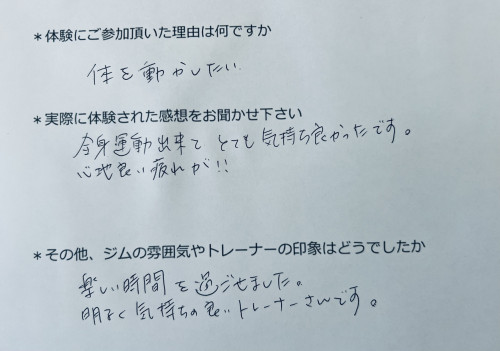 *体験にご参加頂いた理由は何ですか
体を動かしたい
*実際に体験された感想をお聞かせ下さい
全身運動出来てとても気持ち良かったです。
心地良い疲れが!!
*その他、ジムの雰囲気やトレーナーの印象はどうでしたか
楽しい時間を過ごせました。
明るく気持ちの良いトレーナーさんです。